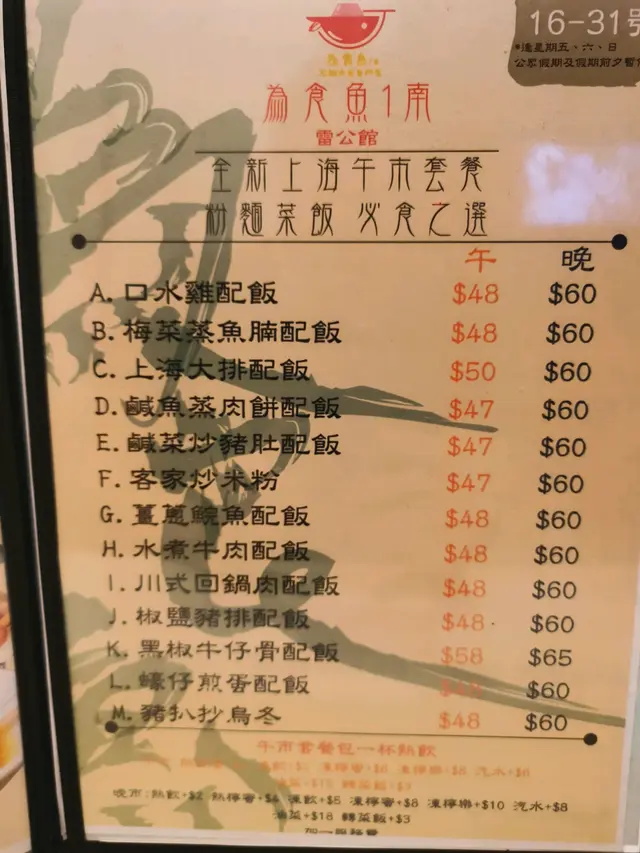 16-31號
*逢星期五、六、日
公眾假期及假期前夕暫停
為食魚1南
雷公館
全新上海午市套餐
粉麵菜飯 必食之選
午 晚
A. 口水雞配飯 $48 $60
B. 梅菜蒸魚腩配飯 $48 $60
C. 上海大排配飯 $50 $60
D. 鹹魚蒸肉餅配飯 $47 $60
E. 鹹菜炒豬肚配飯 $47 $60
F. 客家炒米粉 $47 $60
G. 薑蔥鯇魚配飯 $48 $60
H. 水煮牛肉配飯 $48 $60
I. 川式回鍋肉配飯 $48 $60
J. 椒鹽豬排配飯 $48 $60
K. 黑椒牛仔骨配飯 $58 $65
L. 蠔仔煎蛋配飯 $60
M. 豬扒抄烏冬 $48 $60
午市套餐包一杯熱飲
凍檸蜜+$6 凍檸樂+$8 汽水+$6
晚市:熱飲+$2 熱檸蜜+$4 凍飲+$5 凍檸蜜+$8 凍檸樂+$10 汽水+$8
油菜+$18 轉菜飯+$3
加一服務費